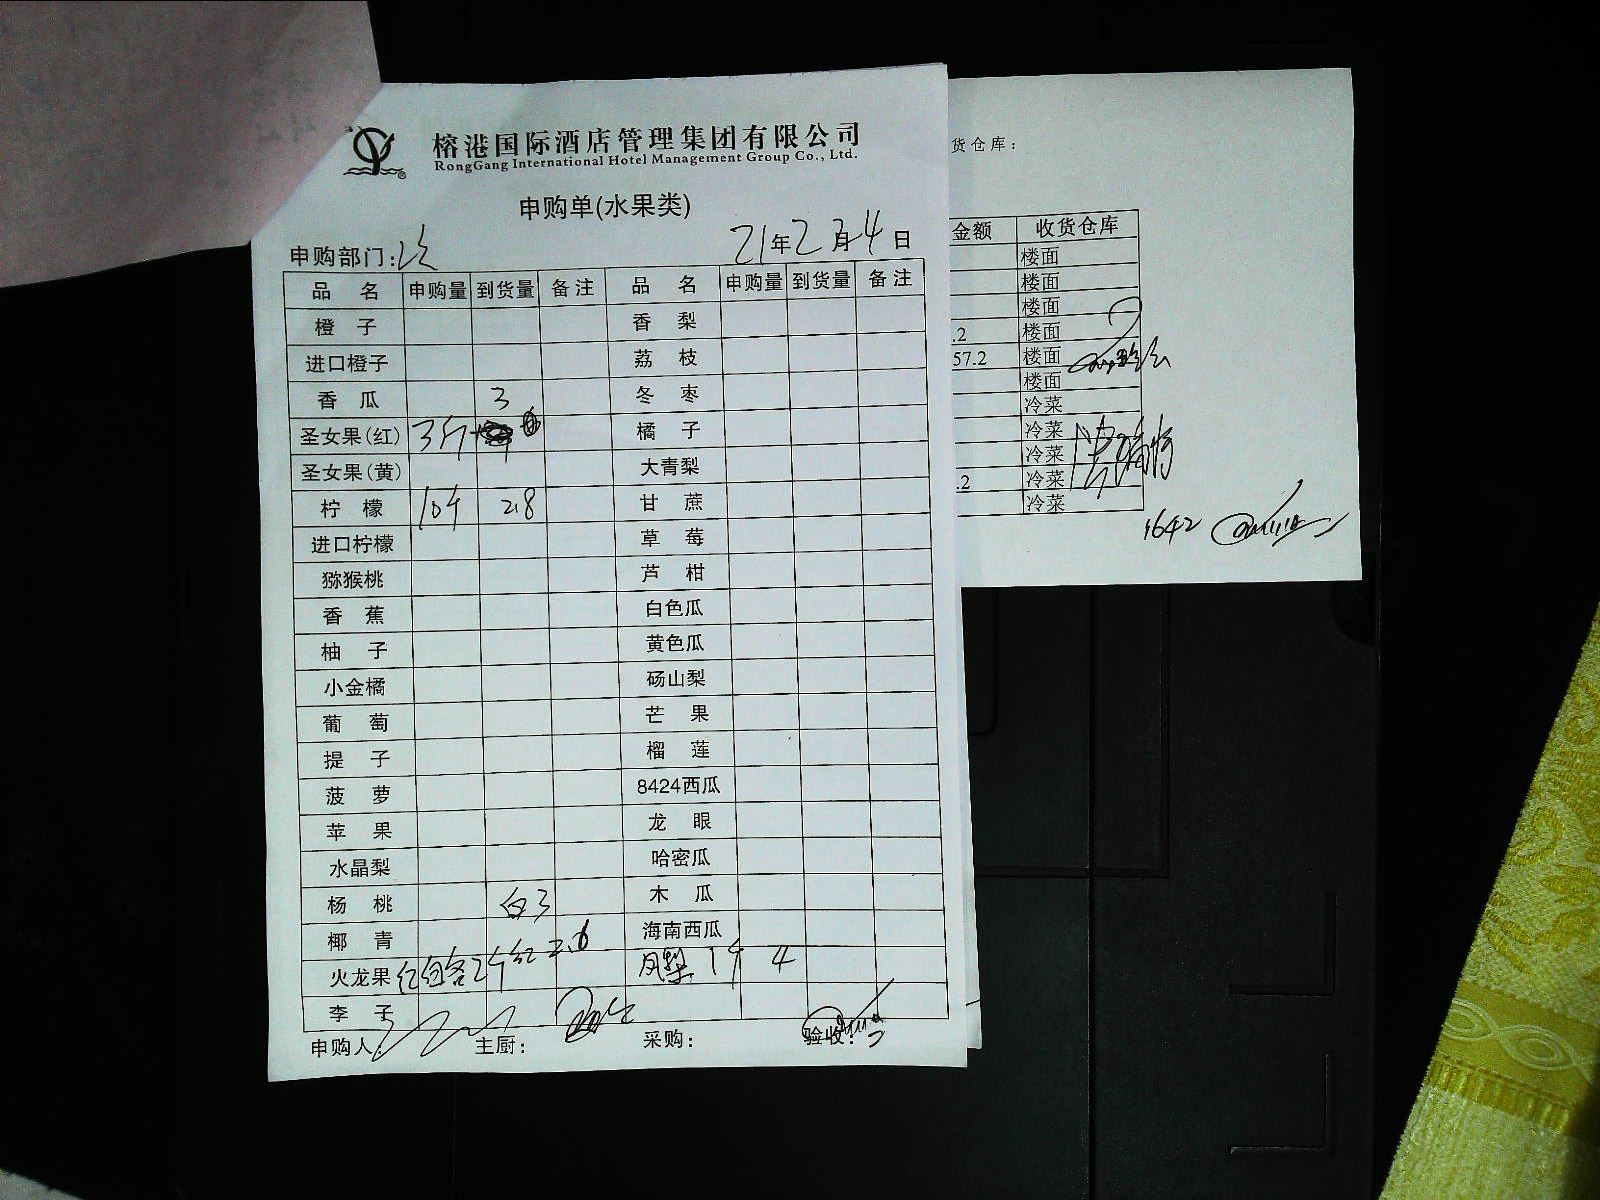 榕港国际酒店管理集团有限公司
RongGang International Hotel Management Group Co., Ltd.
申购单(水果类)
申购部门:
21年2月4日
品 名 申购量 到货量 备注 品 名 申购量 到货量 备注
橙 子 香 梨
进口橙子 荔 枝
香 瓜 3 冬 枣
圣女果(红) 3斤 橘 子
圣女果(黄) 大青梨
柠 檬 10个 2.8 甘 蔗
进口柠檬 草 莓
猕猴桃 芦 柑
香 蕉 白色瓜
柚 子 黄色瓜
小金橘 砀山梨
葡 萄 芒 果
提 子 榴 莲
菠 萝 8424西瓜
苹 果 龙 眼
水晶梨 哈密瓜
杨 桃 白3 木 瓜
椰 青 海南西瓜
火龙果 红白各2个 红 2.6 凤梨 1个 4
李 子
申购人: 主厨: 采购: 验收:
货仓库:
金额 收货仓库
楼面
楼面
楼面
.2 楼面
57.2 楼面
楼面
冷菜
冷菜
冷菜
.2 冷菜
冷菜
1642